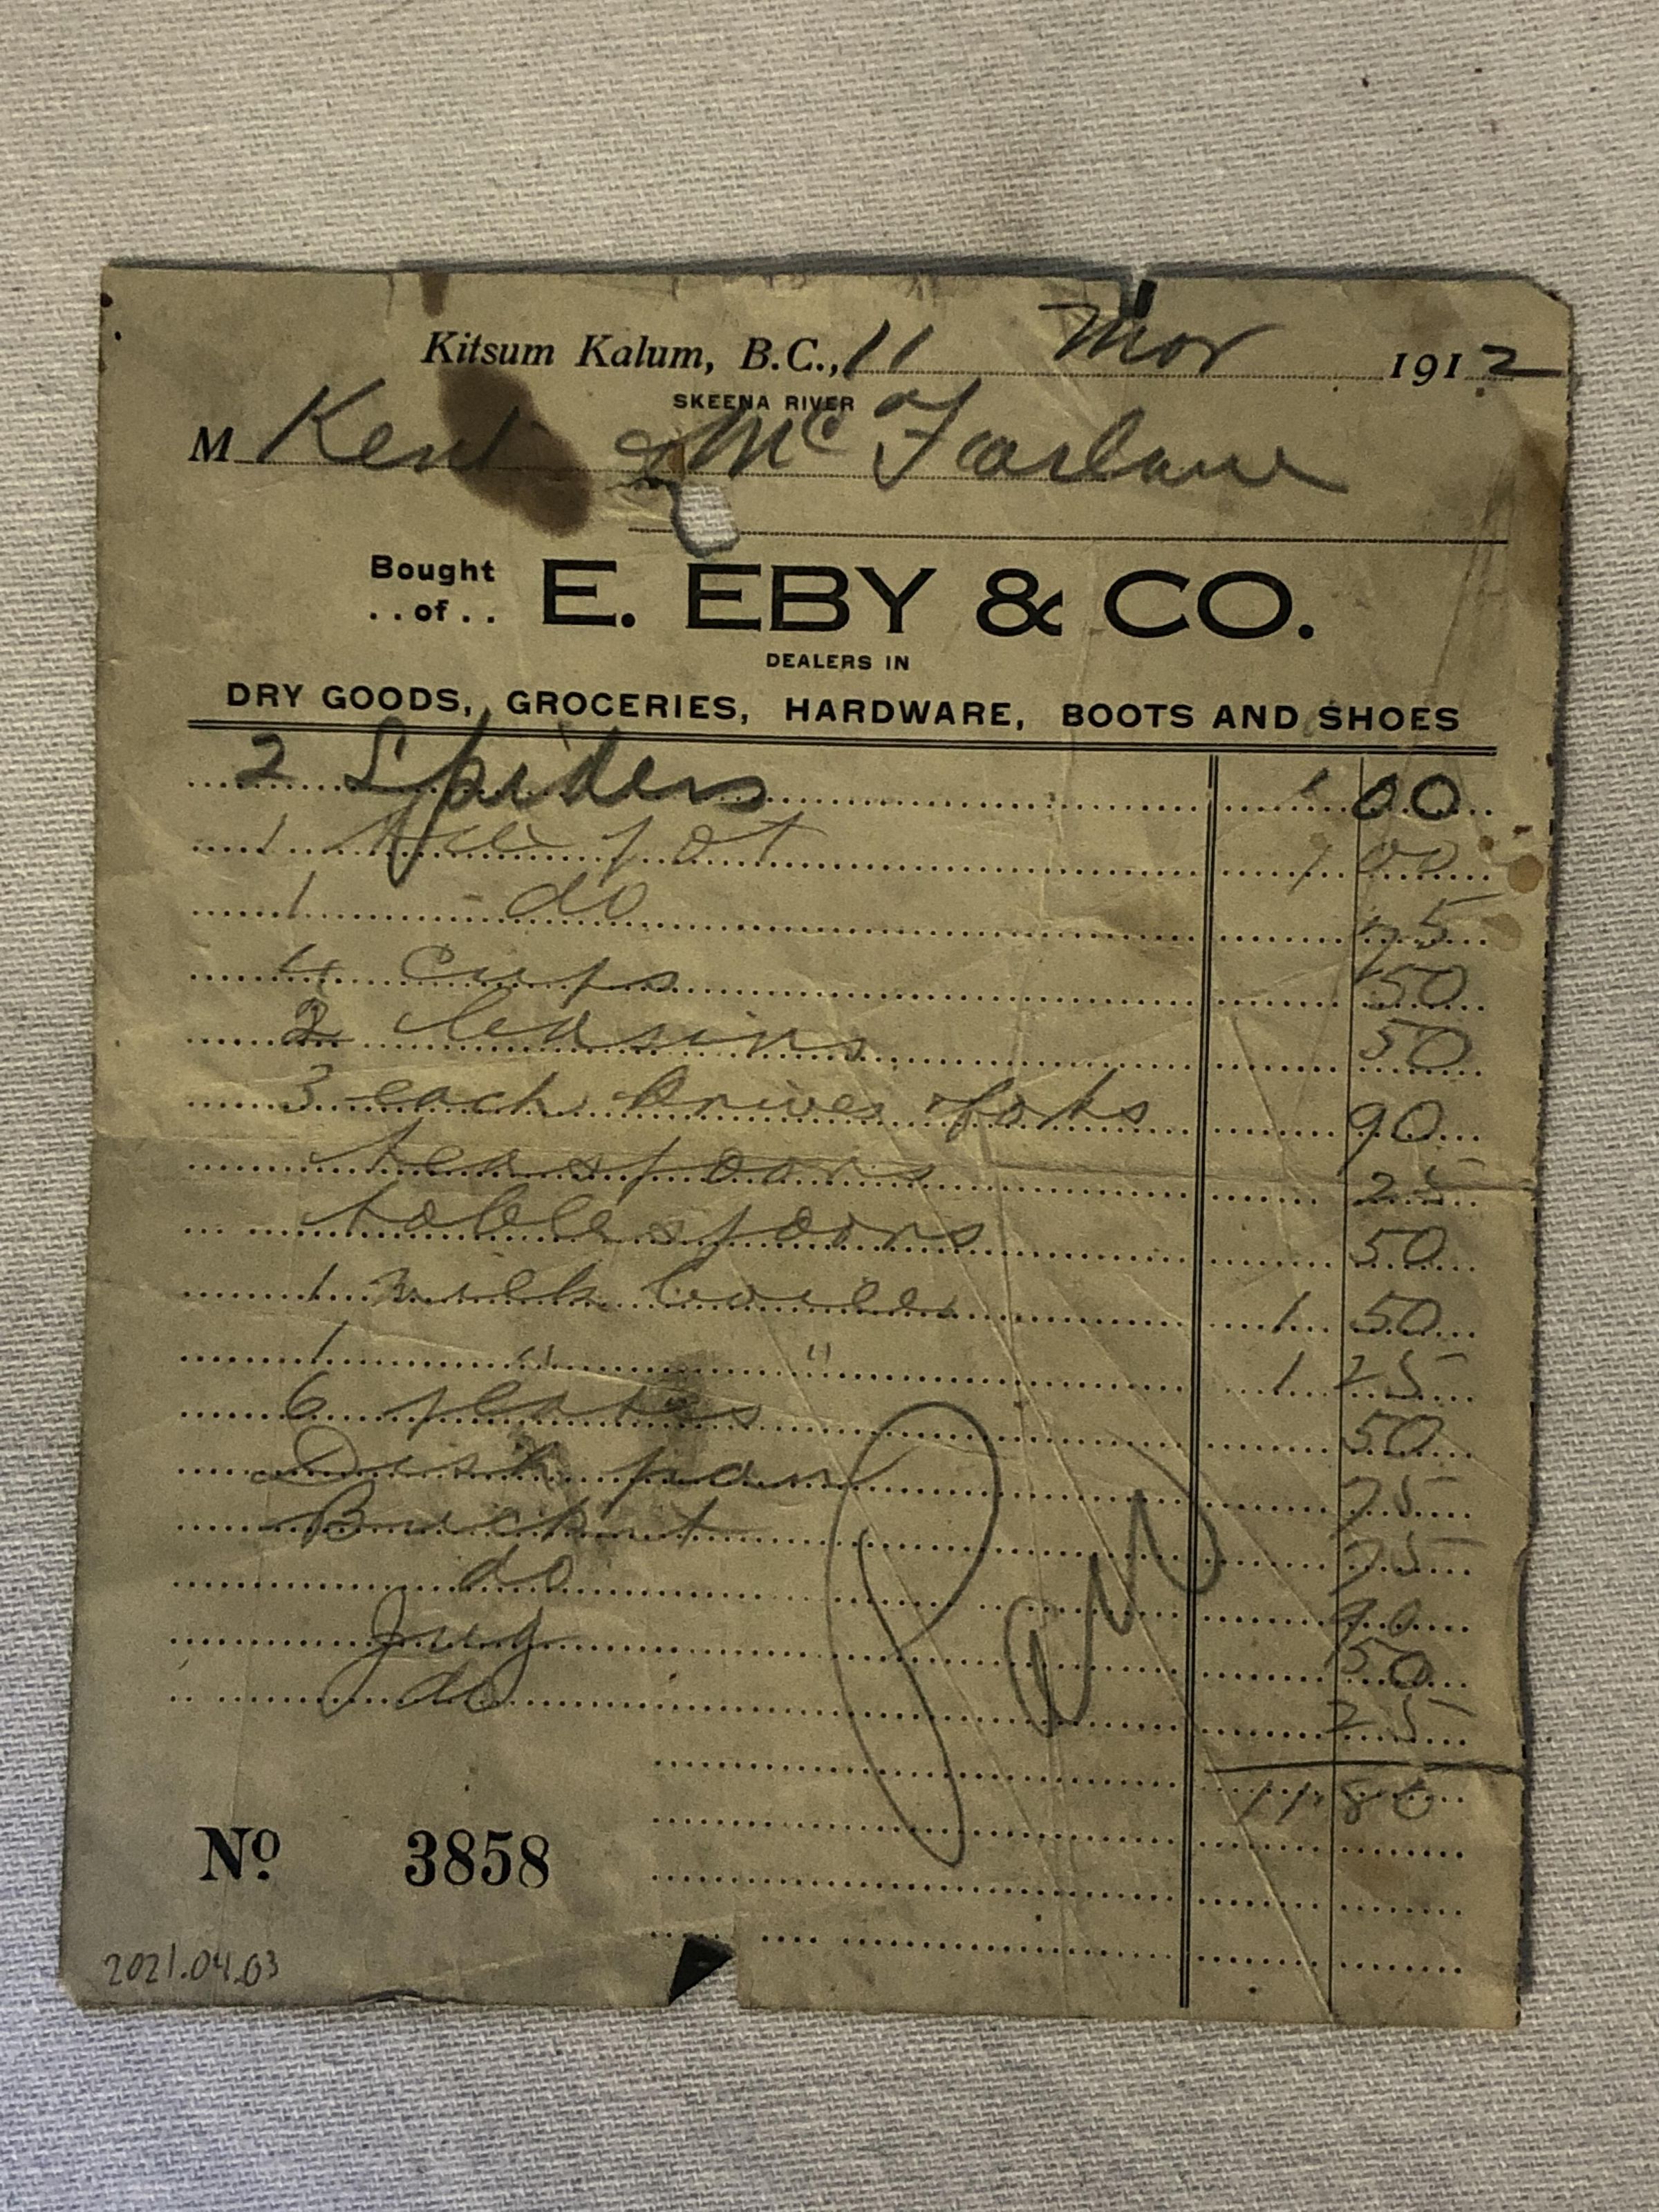 Kitsum Kalum, B.C., 11 Mar 1912
SKEENA RIVER
M Kent & McFarlane
Bought
..of.. E. EBY & CO.
DEALERS IN
DRY GOODS, GROCERIES, HARDWARE, BOOTS AND SHOES
2 Spiders 1 00
1 tea pot 1 00
1 do 75
4 Cups 50
2 basins 50
3 each knives forks 90
teaspoons 25
tablespoons 50
1 milk boiler 1 50
1 " " 1 25
6 plates 50
Dish pan 75
Bucket 75
do 90
Jug 50
do 25
11 80
Paid
No. 3858
2021.04.03